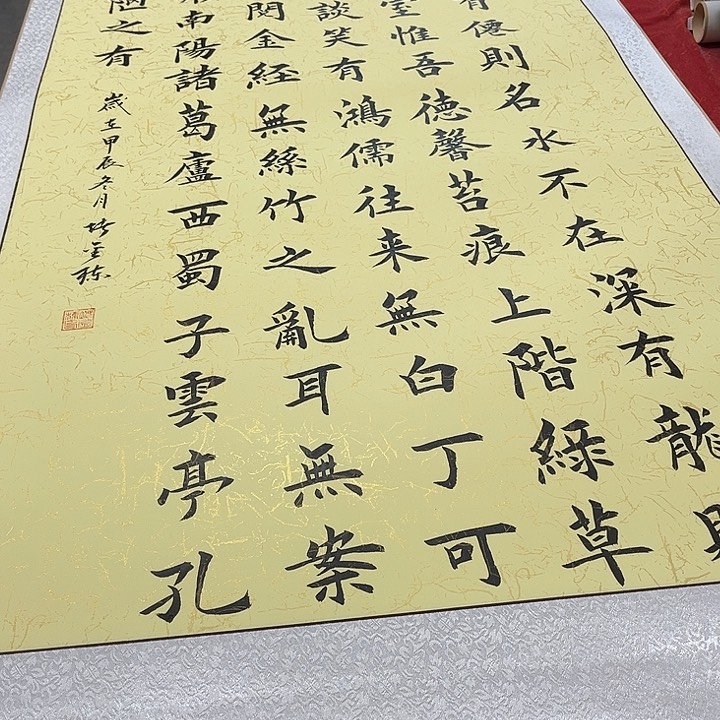 有僊則名水不在深有龍則
室惟吾德馨苔痕上階綠草
談笑有鴻儒往来無白丁可
閱金經無絲竹之亂耳無案
南陽諸葛廬西蜀子雲亭孔
陋之有
歲在甲辰冬月